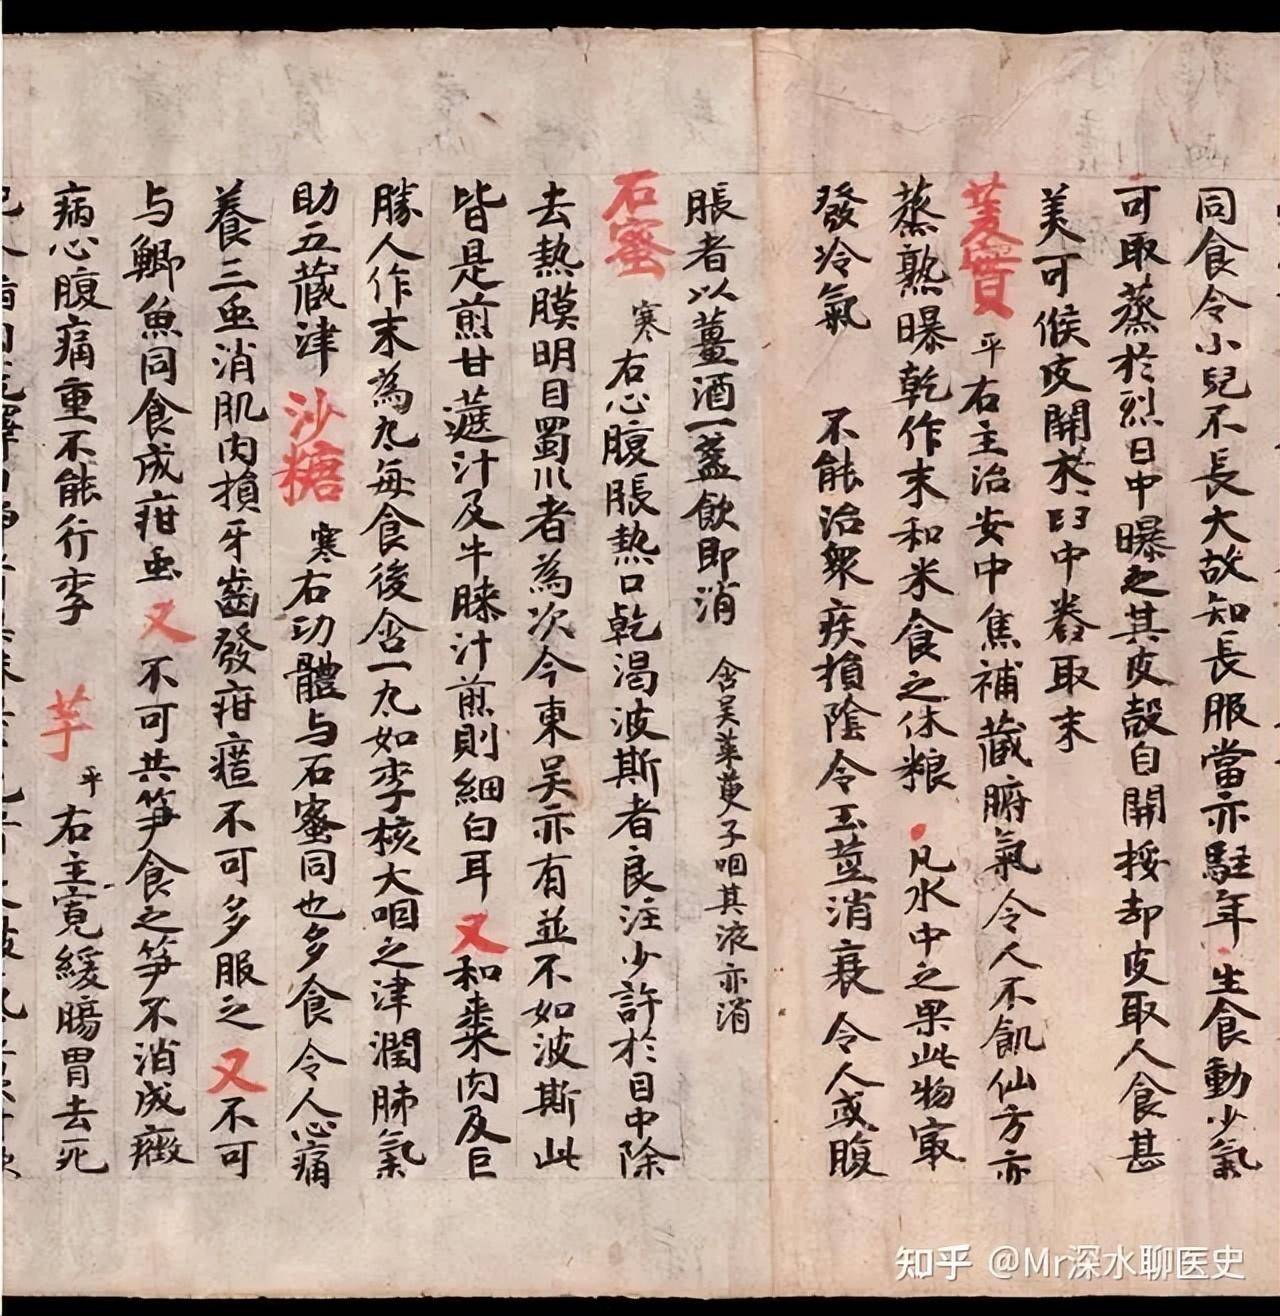 同食令小兒不長大故知長服當亦駐年生食動少氣
可取蒸於烈日中曝之其皮殼自開挼却皮取人食甚
美可候皮開末臼中舂取末
芰實平右主治安中焦補藏腑氣令人不飢仙方亦
蒸熟曝乾作末和米食之休粮凡水中之果此物寂
發冷氣不能治衆疾損陰令玉莖消衰令人或腹
脹者以薑酒一盞飲即消含吴茱萸子咽其液亦消
石蜜寒右心腹脹熱口乾渴波斯者良注少許於目中除
去熱膜明目蜀川者為次今東吴亦有並不如波斯此
皆是煎甘蔗汁及牛膝汁煎則細白耳又和棗肉及巨
勝人作末為丸每食後含一丸如李核大咽之津潤肺氣
助五藏津沙糖寒右功體与石蜜同也多食令人心痛
養三虫消肌肉損牙齒發疳䘌不可多服之又不可
与鯽魚同食成疳虫又不可共笋食之笋不消成癥
病心腹痛重不能行李芋平右主寬緩腸胃去死
知乎 @Mr深水聊医史